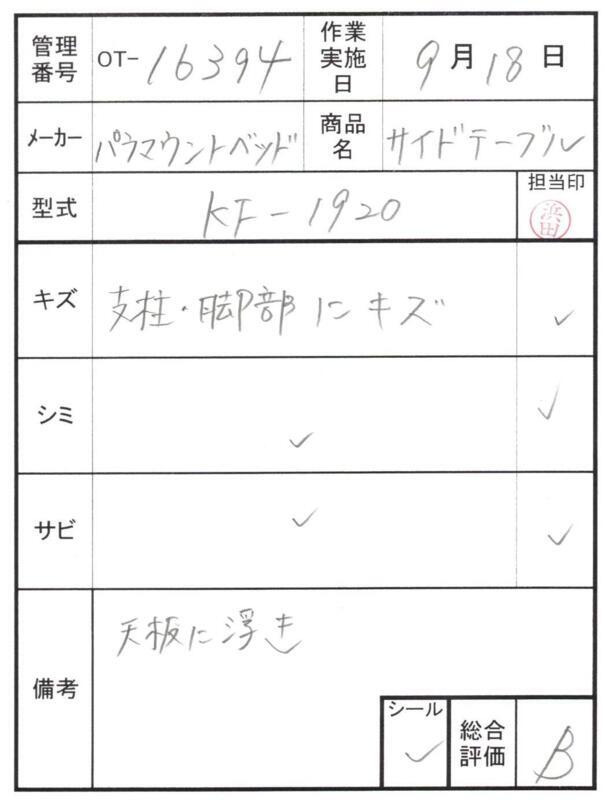 管理番号 OT-16394 作業実施日 9月18日
メーカー パラマウントベッド 商品名 サイドテーブル
型式 KF-1920 担当印 浜田
キズ 支柱・脚部にキズ ✓
シミ ✓ ✓
サビ ✓ ✓
備考 天板に浮き
シール ✓ 総合評価 B